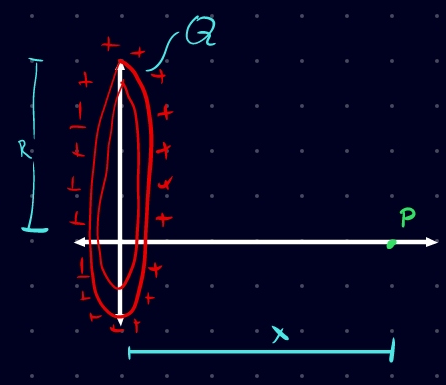 Q
R
P
x